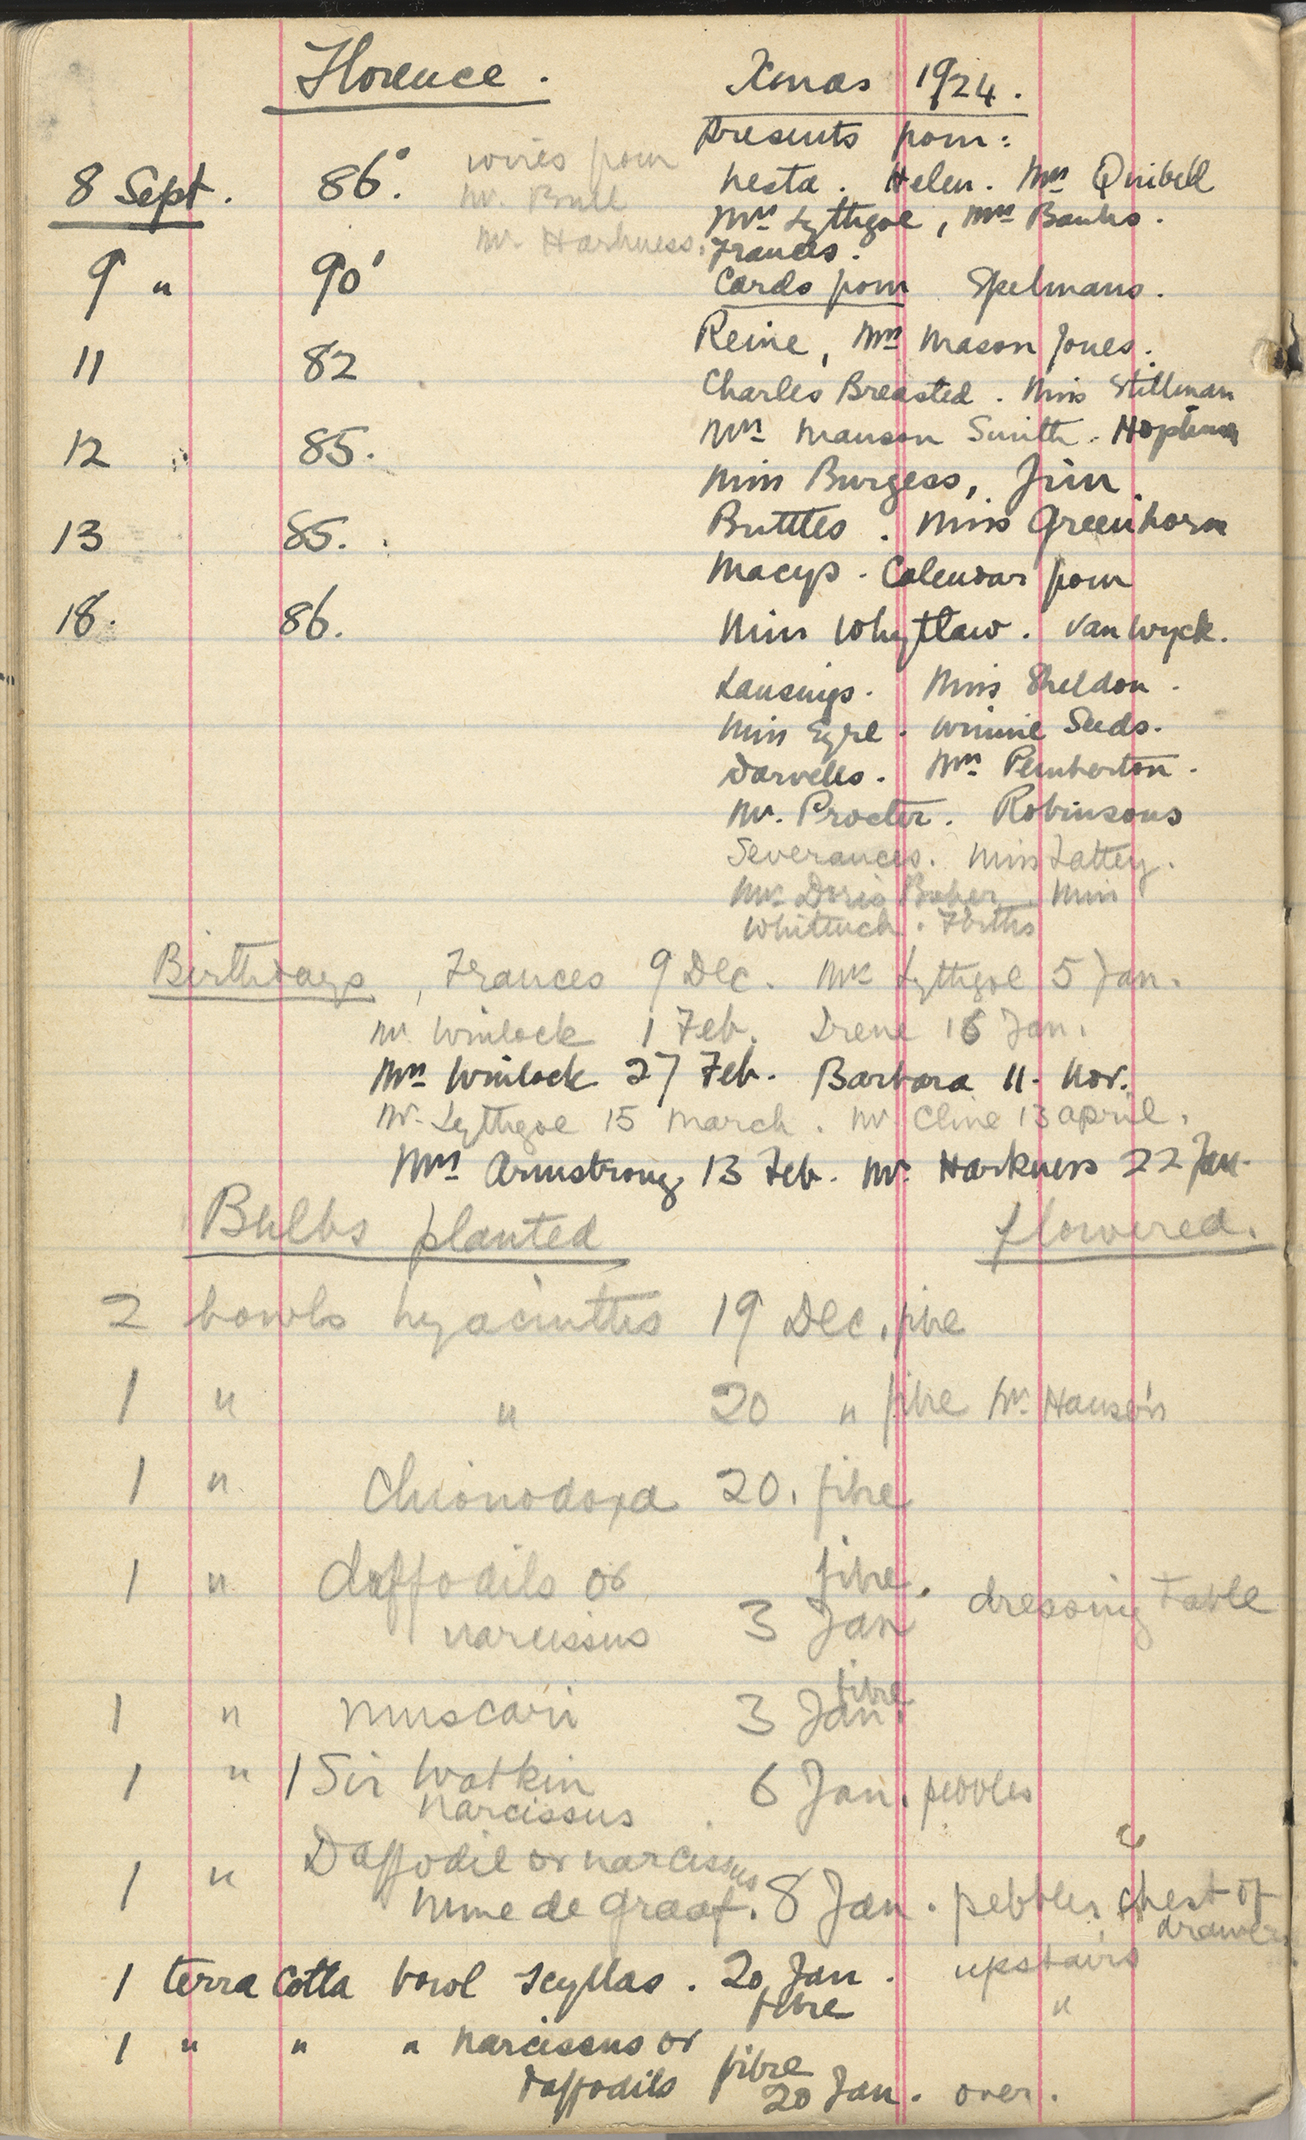 Florence.
8 Sept. 86°.
9 " 90'
11 82
12 " 85.
13 85.
18. 86.
wires from
Mr. Bull
Mr. Harkness.
Xmas 1924.
Presents from:
Nesta. Helen. Mrs Quibell
Mrs Lythgoe, Mrs Banks.
Frances.
Cards from Spelmans.
Reine, Mrs Mason Jones.
Charles Breasted. Miss Stillman
Mrs Manson Smith. Hoptons
Miss Burgess, Jim
Buttles. Miss Greenhorn
Macys. Calendar from
Miss Whytlaw. Van Wyck.
Lansings. Miss Sheldon.
Miss Eyre. Winnie Seeds.
Darvells. Mrs Pemberton.
Mr. Procter. Robinsons
Severances. Miss Lattey.
Mrs Doris Baker. Miss
Firths
Birthdays, Frances 9 Dec. Mrs Lythgoe 5 Jan.
Mr Winlock 1 Feb. Irene 16 Jan.
Mrs Winlock 27 Feb. Barbara 11. Nov.
Mr. Lythgoe 15 March. Mr Cline 13 april.
Mrs Armstrong 13 Feb. Mr. Harkness 22 Jan.
Bulbs planted flowered.
2 bowls hyacinths 19 Dec. fibre
1 " " 20 " fibre Mr Hauser's
1 " Chionodoxa 20. fibre
1 " daffodils or fibre.
narcissus 3 Jan dressing table
1 " muscari 3 Jan. fibre
1 " 1 Sir Watkin 6 Jan. pebbles
narcissus
1 " Daffodil or narcissus
Mme de Graaf. 8 Jan. pebbles chest of
drawers
upstairs
1 terra cotta bowl Scyllas. 20 Jan.
fibre "
1 " " " narcissus or
daffodils fibre
20 Jan. over.